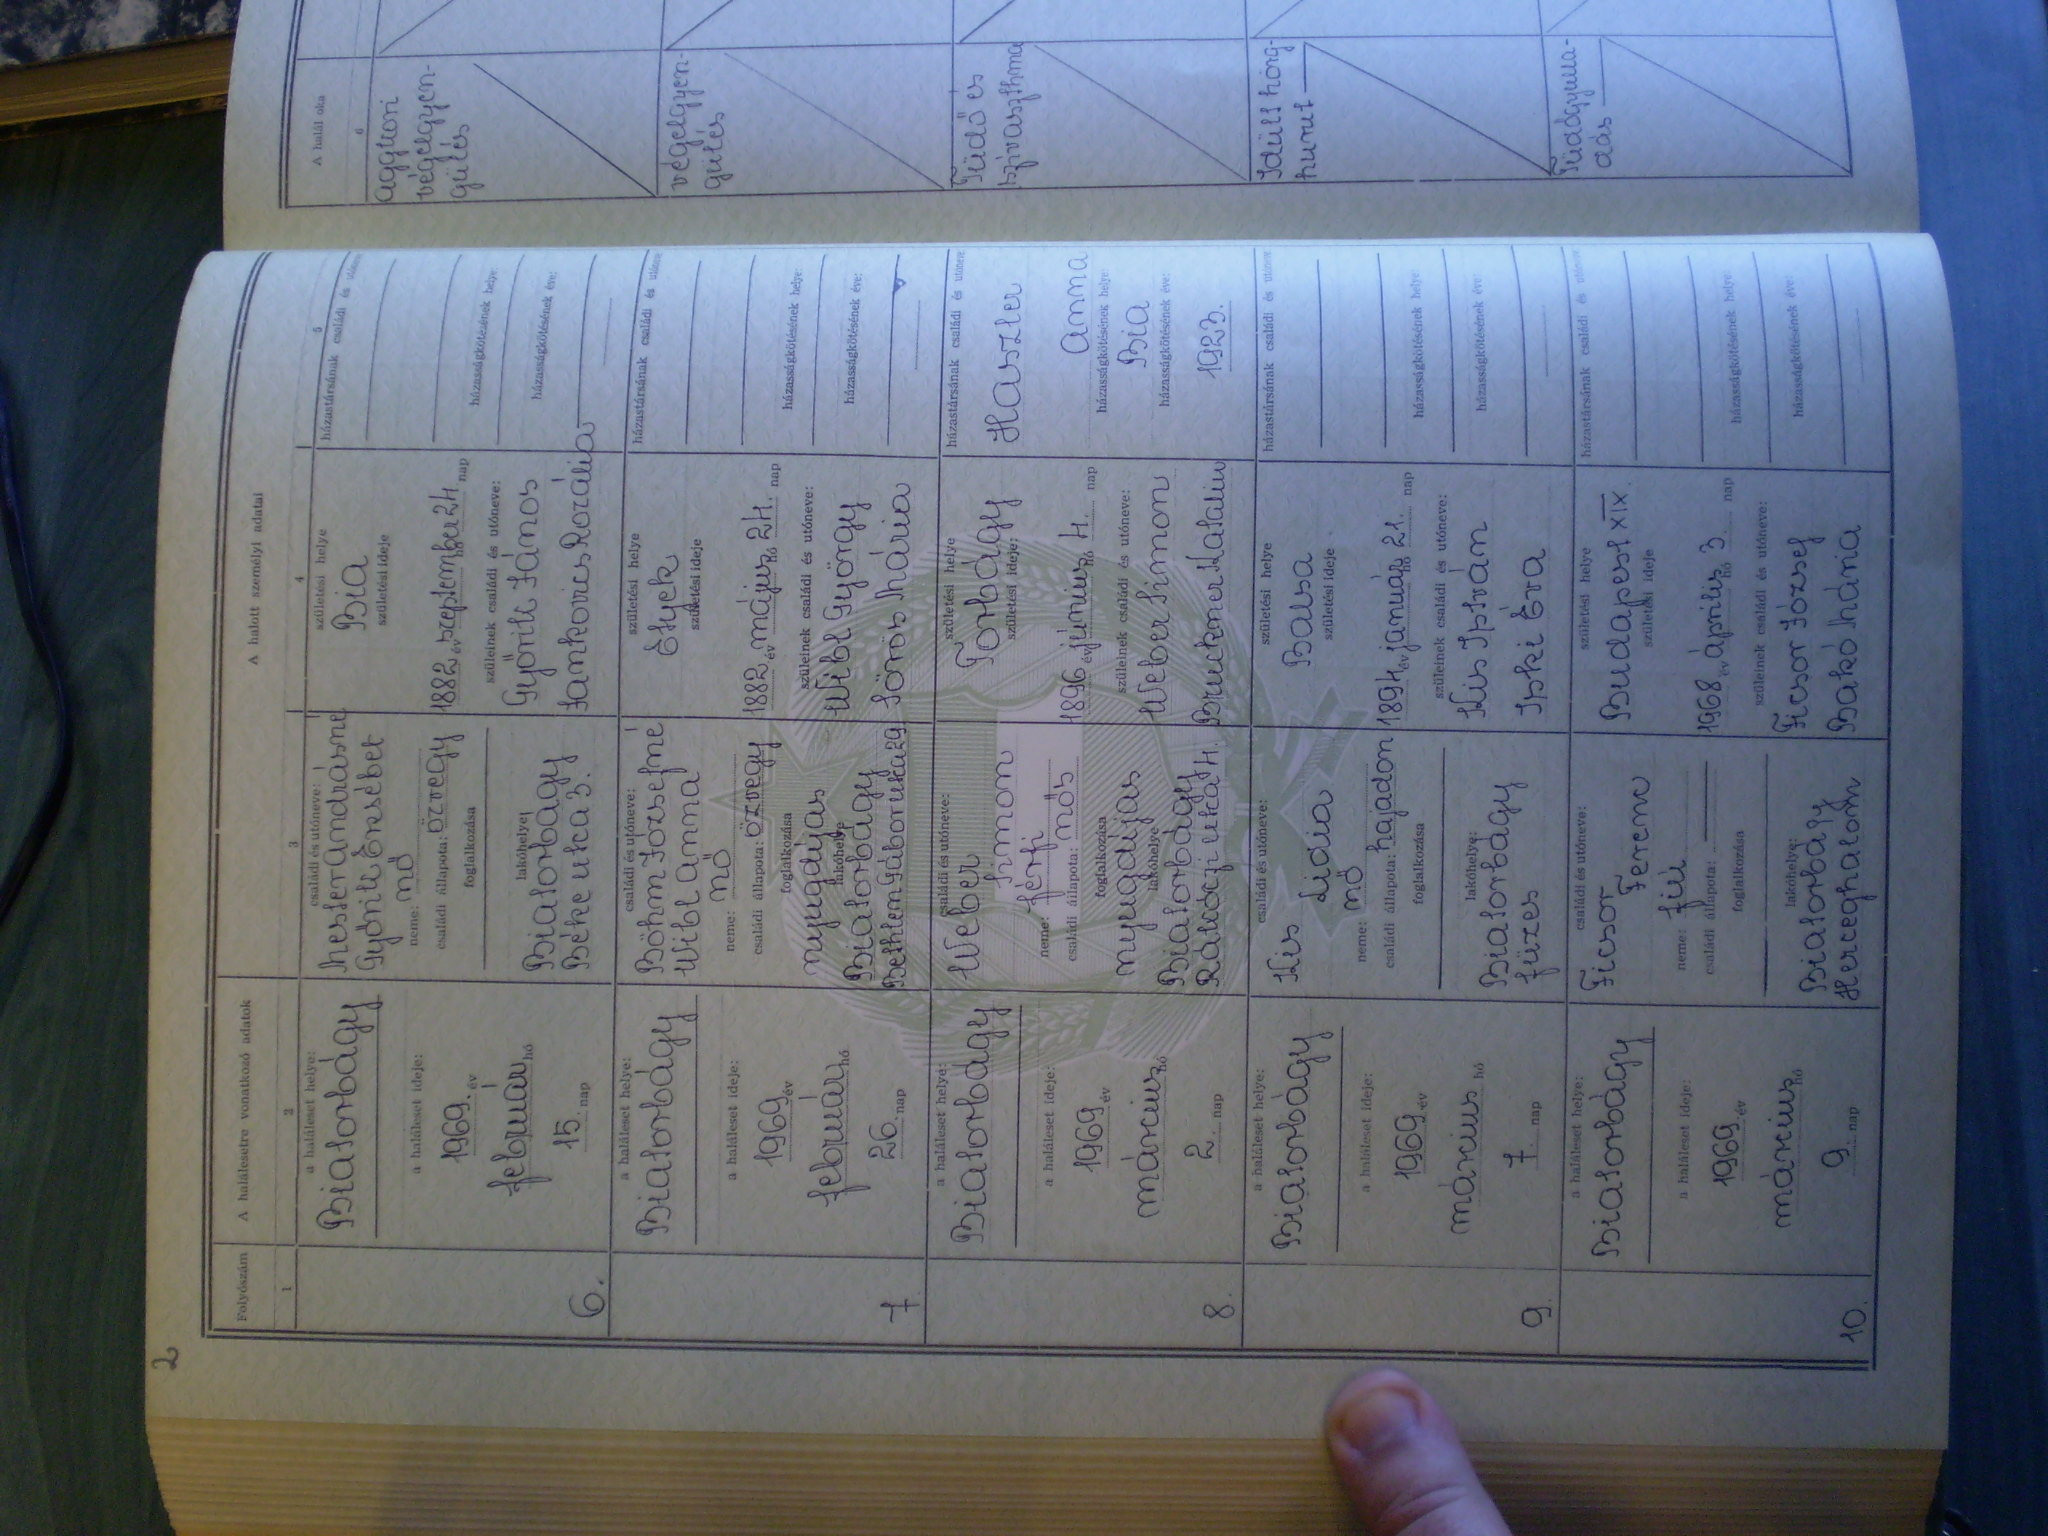 2
Folyószám
A halálesetre vonatkozó adatok
A halott személyi adatai
A halál oka
1
2
3
4
5
6
6.
a haláleset helye:
Biatorbágy
a haláleset ideje:
1969. év
február hó
15. nap
családi és utóneve:
Mester Andrásné
Györik Erzsébet
neme: nő
családi állapota: özvegy
foglalkozása
lakóhelye:
Biatorbágy
Béke utca 3.
születési helye
Bia
születési ideje
1882 év szeptember hó 24. nap
szüleinek családi és utóneve:
Györik János
Jankovics Rozália
házastársának családi és utóneve
házasságkötésének helye:
házasságkötésének éve:
aggkori
végelgyen-
gülés
7.
a haláleset helye:
Biatorbágy
a haláleset ideje:
1969 év
február hó
26. nap
családi és utóneve:
Böhm Józsefné
Wibl Anna
neme: nő
családi állapota: özvegy
foglalkozása
nyugdíjas
lakóhelye
Biatorbágy
Bethlen Gábor utca 29
születési helye
Etyek
születési ideje
1882 év május hó 24. nap
szüleinek családi és utóneve:
Wibl György
Sörös Mária
házastársának családi és utóneve
házasságkötésének helye:
házasságkötésének éve:
végelgyen-
gülés
8.
a haláleset helye:
Biatorbágy
a haláleset ideje:
1969 év
március hó
2. nap
családi és utóneve:
Weber
Simon
neme: férfi
családi állapota: nős
foglalkozása
nyugdíjas
lakóhelye
Biatorbágy
Rákóczi utca 4.
születési helye
Torbágy
születési ideje:
1896 év június hó 4. nap
szüleinek családi és utóneve:
Weber Simon
Bruckner Katalin
házastársának családi és utóneve
Haszler
Anna
házasságkötésének helye:
Bia
házasságkötésének éve:
1923.
Tüdő és
szívaszthma
9.
a haláleset helye:
Biatorbágy
a haláleset ideje:
1969 év
március hó
7 nap
családi és utóneve:
Kis
Lidia
neme: nő
családi állapota: hajadon
foglalkozása
lakóhelye:
Biatorbágy
füzes
születési helye
Balsa
születési ideje
1894 év január hó 21. nap
szüleinek családi és utóneve:
Kis István
Ipki Éva
házastársának családi és utóneve
házasságkötésének helye:
házasságkötésének éve:
Idült hörg-
hurut
10.
a haláleset helye:
Biatorbágy
a haláleset ideje:
1969 év
március hó
9. nap
családi és utóneve:
Ficsor
Ferenc
neme: fiú
családi állapota:
foglalkozása
lakóhelye:
Biatorbágy
Herceghalom
születési helye
Budapest XIX.
születési ideje
1968 év április hó 3. nap
szüleinek családi és utóneve:
Ficsor József
Bakó Mária
házastársának családi és utóneve
házasságkötésének helye:
házasságkötésének éve:
Tüdőgyulla-
dás